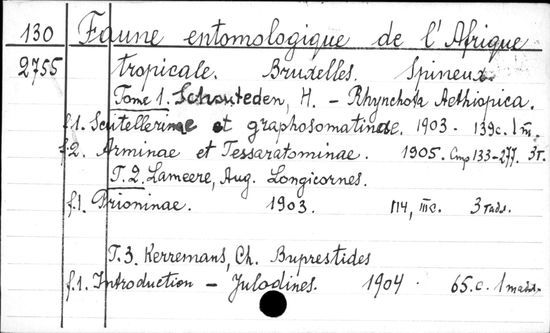 130 Faune entomologique de l'Afrique
2755 tropicale. Bruxelles. Spineux.
Tome 1. Schouteden, H. – Rhynchota Aethiopica.
f.1. Scutellerinae et graphosomatinae. 1903. 139c. 1 m.
f.2. Arminae et Tessaratominae. 1905. Стр 133–277. 3т.
T. 2. Lameere, Aug. Longicornes.
f.1. Prioninae. 1903. 114, IIIc. 3 табл.
T. 3. Kerremans, Ch. Buprestides
f.1. Introduction – Julodines. 1904. 65.c. 1 табл.